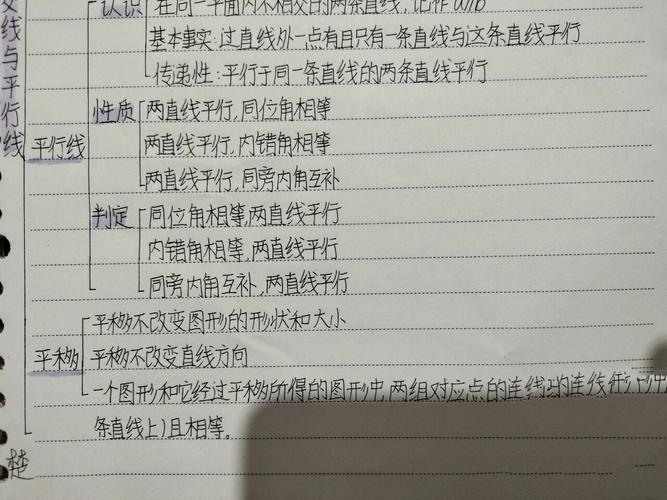 认识 在同一平面内不相交的两条直线,记作a//b
基本事实:过直线外一点有且只有一条直线与这条直线平行
传递性:平行于同一条直线的两条直线平行
线与平行线
平行线
性质 两直线平行,同位角相等
两直线平行,内错角相等
两直线平行,同旁内角互补
判定 同位角相等,两直线平行
内错角相等,两直线平行
同旁内角互补,两直线平行
平移 平移不改变图形的形状和大小
平移不改变直线方向
一个图形和它经过平移所得的图形中,两组对应点的连线
条直线上)且相等。
楚